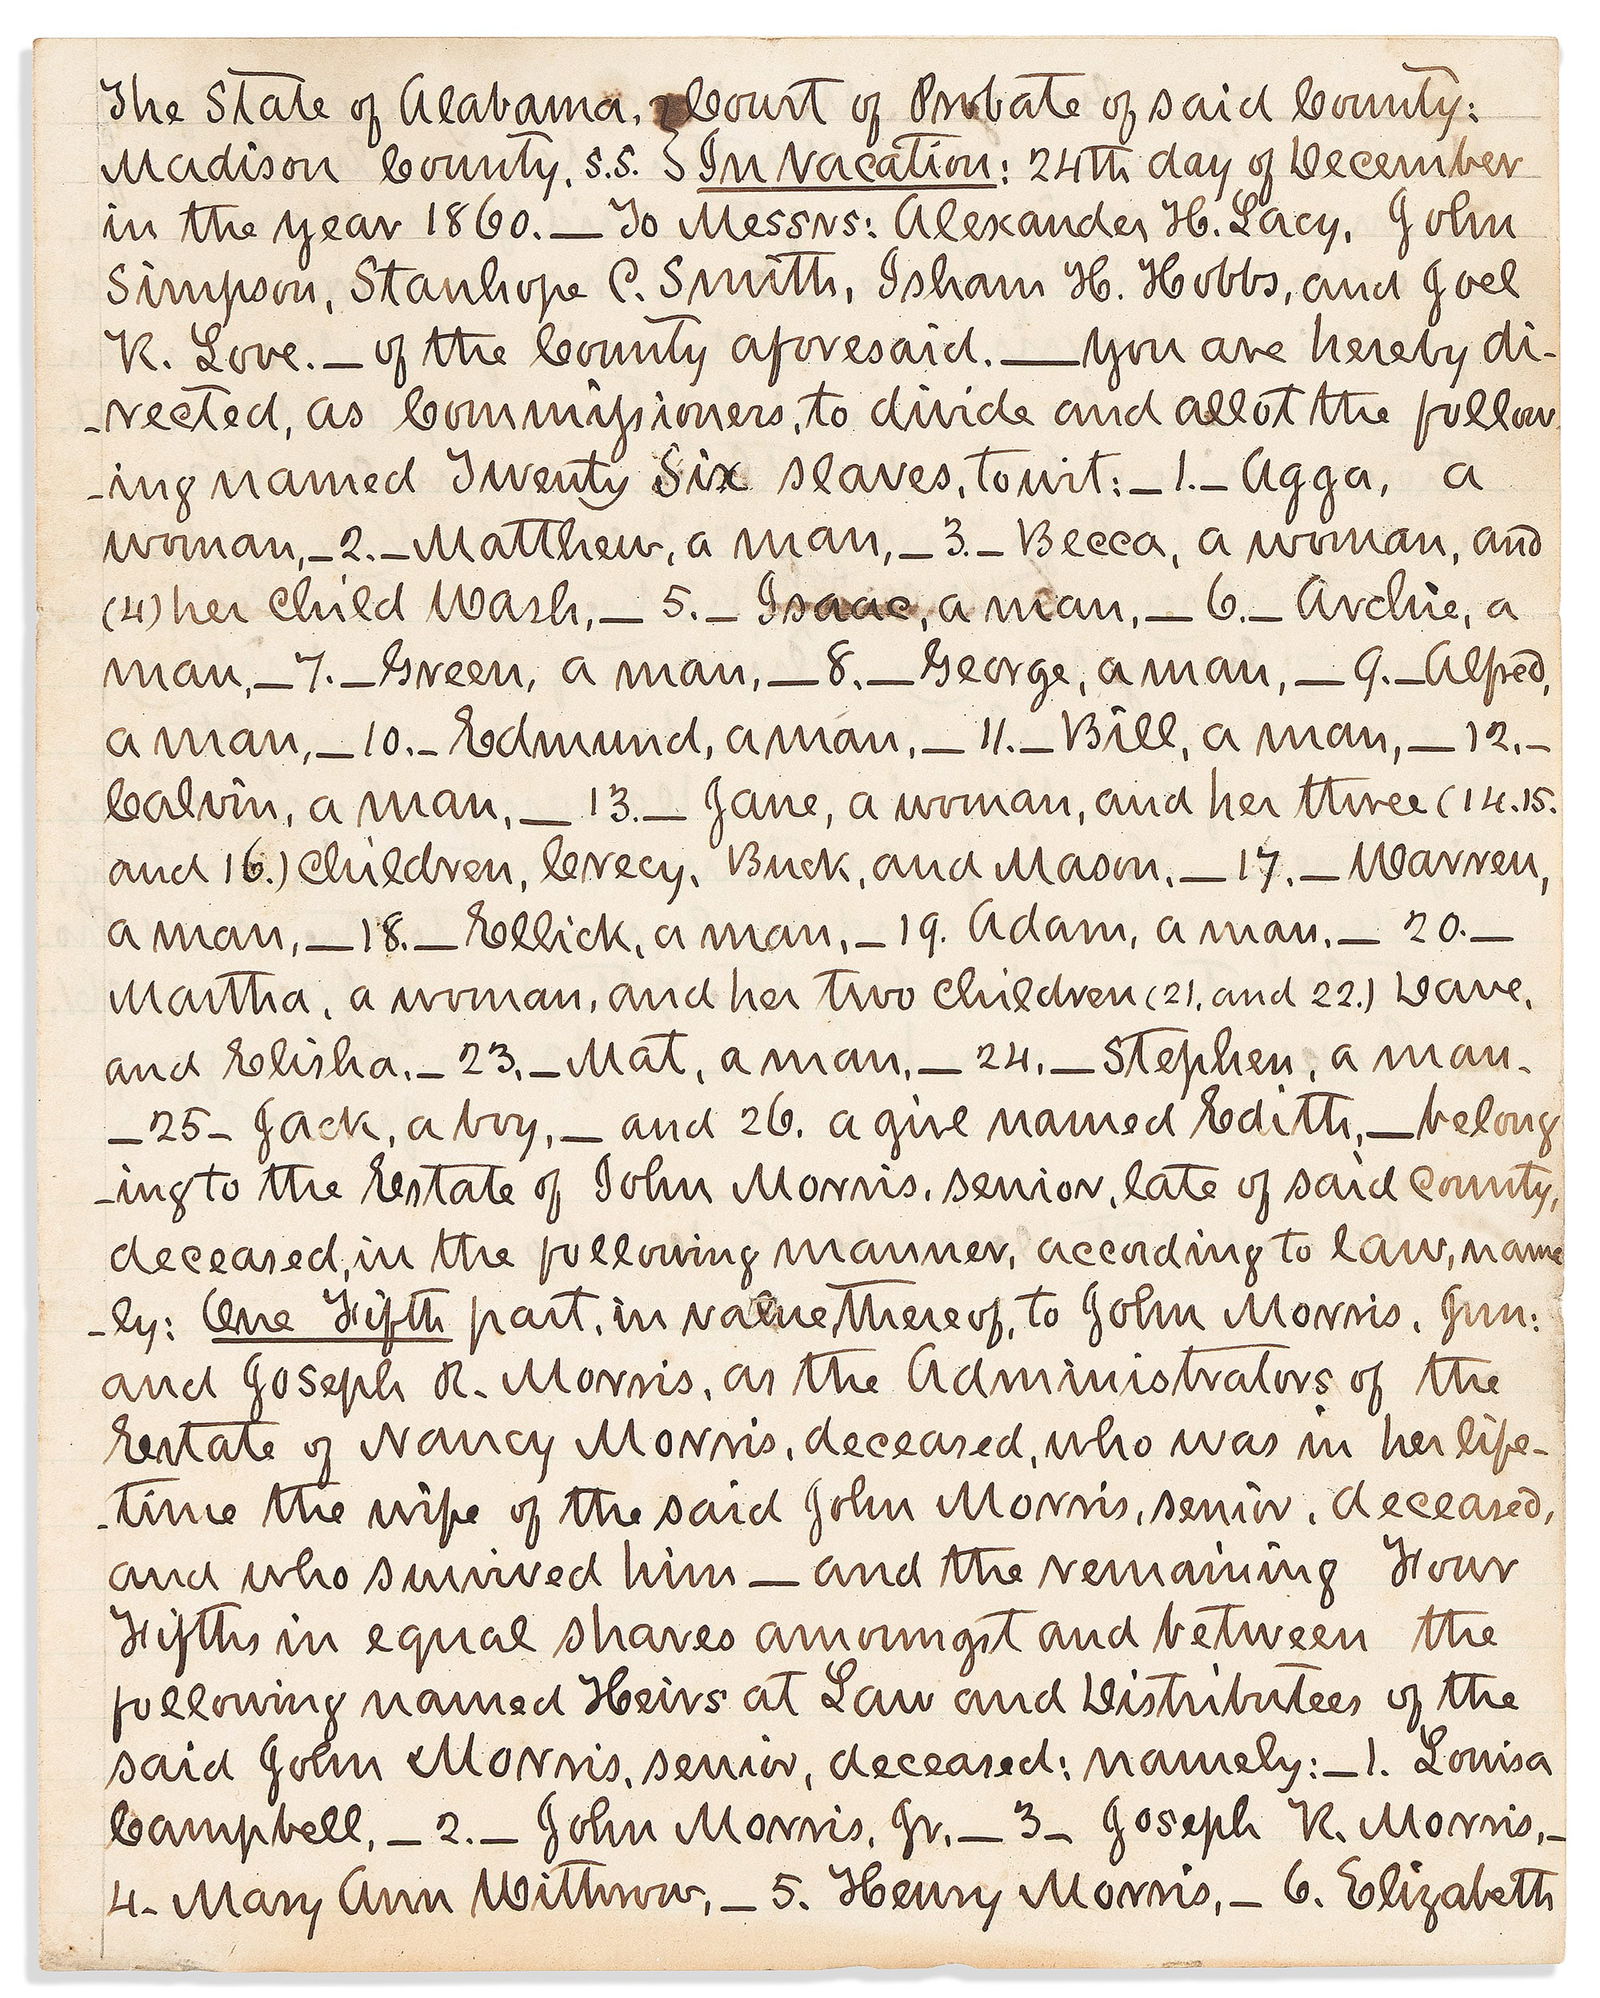 The State of Alabama, } Court of Probate of said County:
Madison County, S.S. } In Vacation: 24th day of December
in the year 1860. — To Messrs: Alexander H. Lacy, John
Simpson, Stanhope C. Smith, Isham H. Hobbs, and Joel
K. Love. — of the County aforesaid. — You are hereby di-
-rected, as Commissioners, to divide and allot the follow
-ing named Twenty Six slaves, towit: — 1. — Agga, a
woman, — 2. — Matthew, a man, — 3. — Becca, a woman, and
(4) her Child Wash, — 5. — Isaac, a man, — 6. — Archie, a
man, — 7. — Green, a man, — 8. — George, a man, — 9. — Alfred,
a man, — 10. — Edmund, a man, — 11. — Bill, a man, — 12. —
Calvin, a man, — 13. — Jane, a woman, and her three (14.15.
and 16.) Children, Crecy, Buck, and Mason, — 17. — Warren,
a man, — 18. — Ellick, a man, — 19. Adam, a man, — 20. —
Martha, a woman, and her two Children (21, and 22.) Dave,
and Elisha. — 23. — Mat, a man, — 24. — Stephen, a man.
— 25 — Jack, a boy, — and 26. a girl named Edith, — belong
-ing to the Estate of John Morris, senior, late of said County,
deceased, in the following manner, according to law, name
-ly: One Fifth part, in value, thereof, to John Morris, Jun:
and Joseph R. Morris, as the Administrators of the
Estate of Nancy Morris, deceased, who was in her life-
-time the wife of the said John Morris, senior, deceased,
and who survived him — and the remaining Four
Fifths in equal shares amoungst and between the
following named Heirs at Law and Distributees of the
said John Morris, senior, deceased: namely: — 1. Louisa
Campbell, — 2. — John Morris, Jr, — 3 — Joseph R. Morris, —
4 - Mary Ann Withrow, — 5. Henry Morris, — 6. Elizabeth